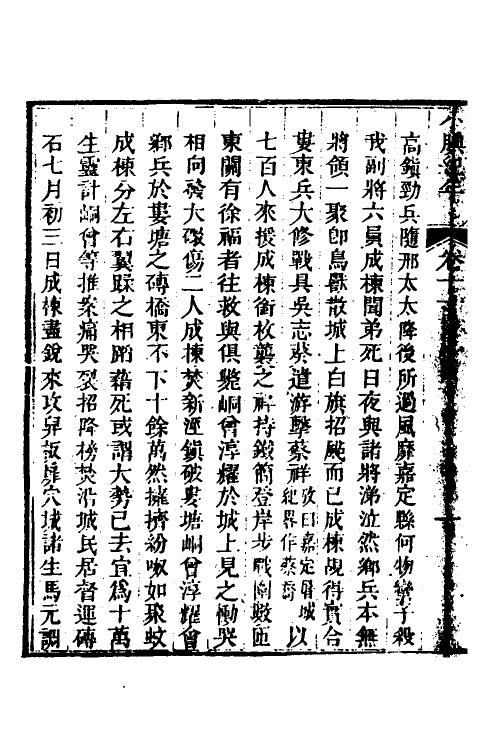 小腆紀年 卷十一
高鎮勁兵隨邢太太降後所過風靡嘉定縣何物蠻子殺
我副將六員成棟聞弟死日夜與諸將涕泣然鄉兵本無
將領一聚卽鳥獸散城上白旗招颭而已成棟覘得實合
婁東兵大修戰具吳志葵遣游擊蔡祥攷曰嘉定屠城紀畧作蔡喬以
七百人來援成棟銜枚襲之祥持鐵簡登岸步戰圍數匝
東關有徐福者往救與俱斃峒曾淳耀於城上見之慟哭
相向發大礮傷二人成棟焚新涇鎮破婁塘峒曾淳耀會
鄉兵於婁塘之磚橋東不下十餘萬然擁擠紛呶如聚蚊
成棟分左右翼蹂之相蹂藉死或謂大勢已去宜爲十萬
生靈計峒曾等推案痛哭裂招降榜焚沿城民居督運磚
石七月初三日成棟盡銳來攻舁版扉穴城諸生馬元調